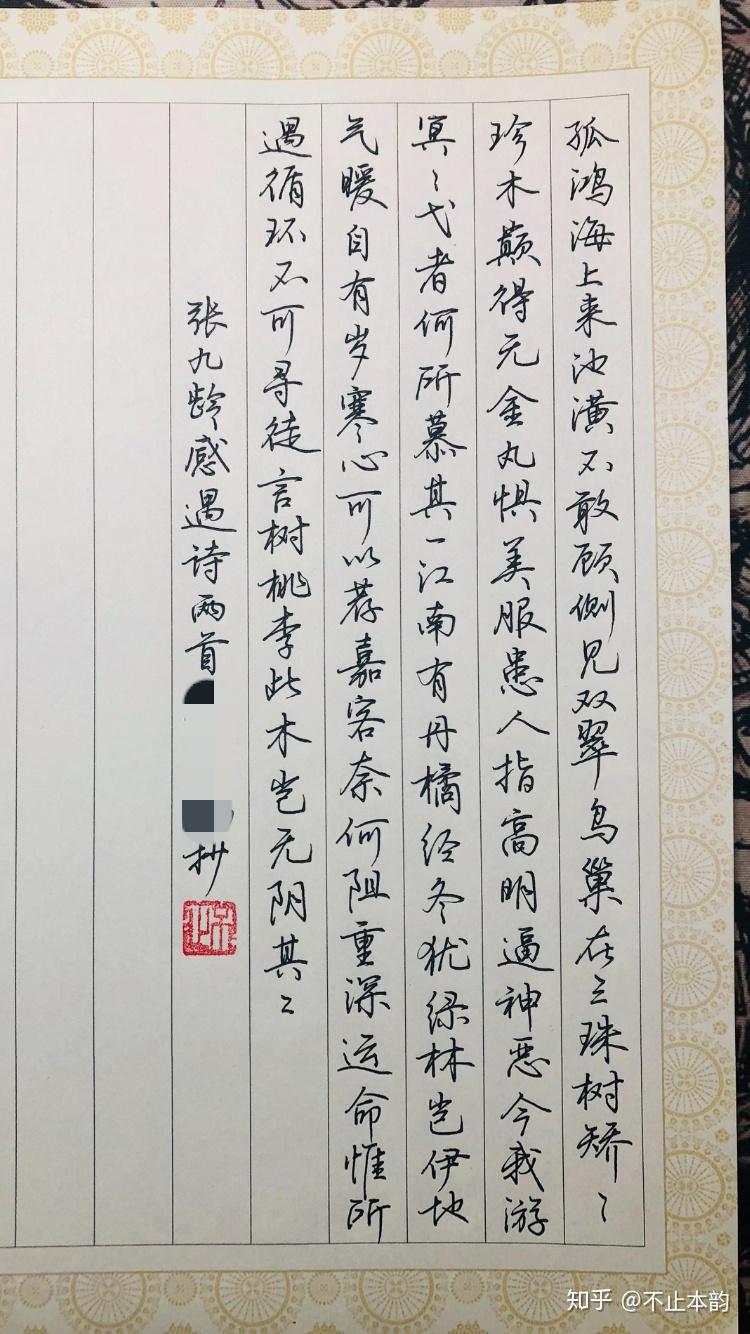 孤鸿海上来池潢不敢顾侧见双翠鸟巢在三珠树矫〻
珍木颠得无金丸惧美服患人指高明逼神恶今我游
冥〻弋者何所慕其一江南有丹橘经冬犹绿林岂伊地
气暖自有岁寒心可以荐嘉客奈何阻重深运命惟所
遇循环不可寻徒言树桃李此木岂无阴其二
张九龄感遇诗两首
抄
知乎 @不止本韵